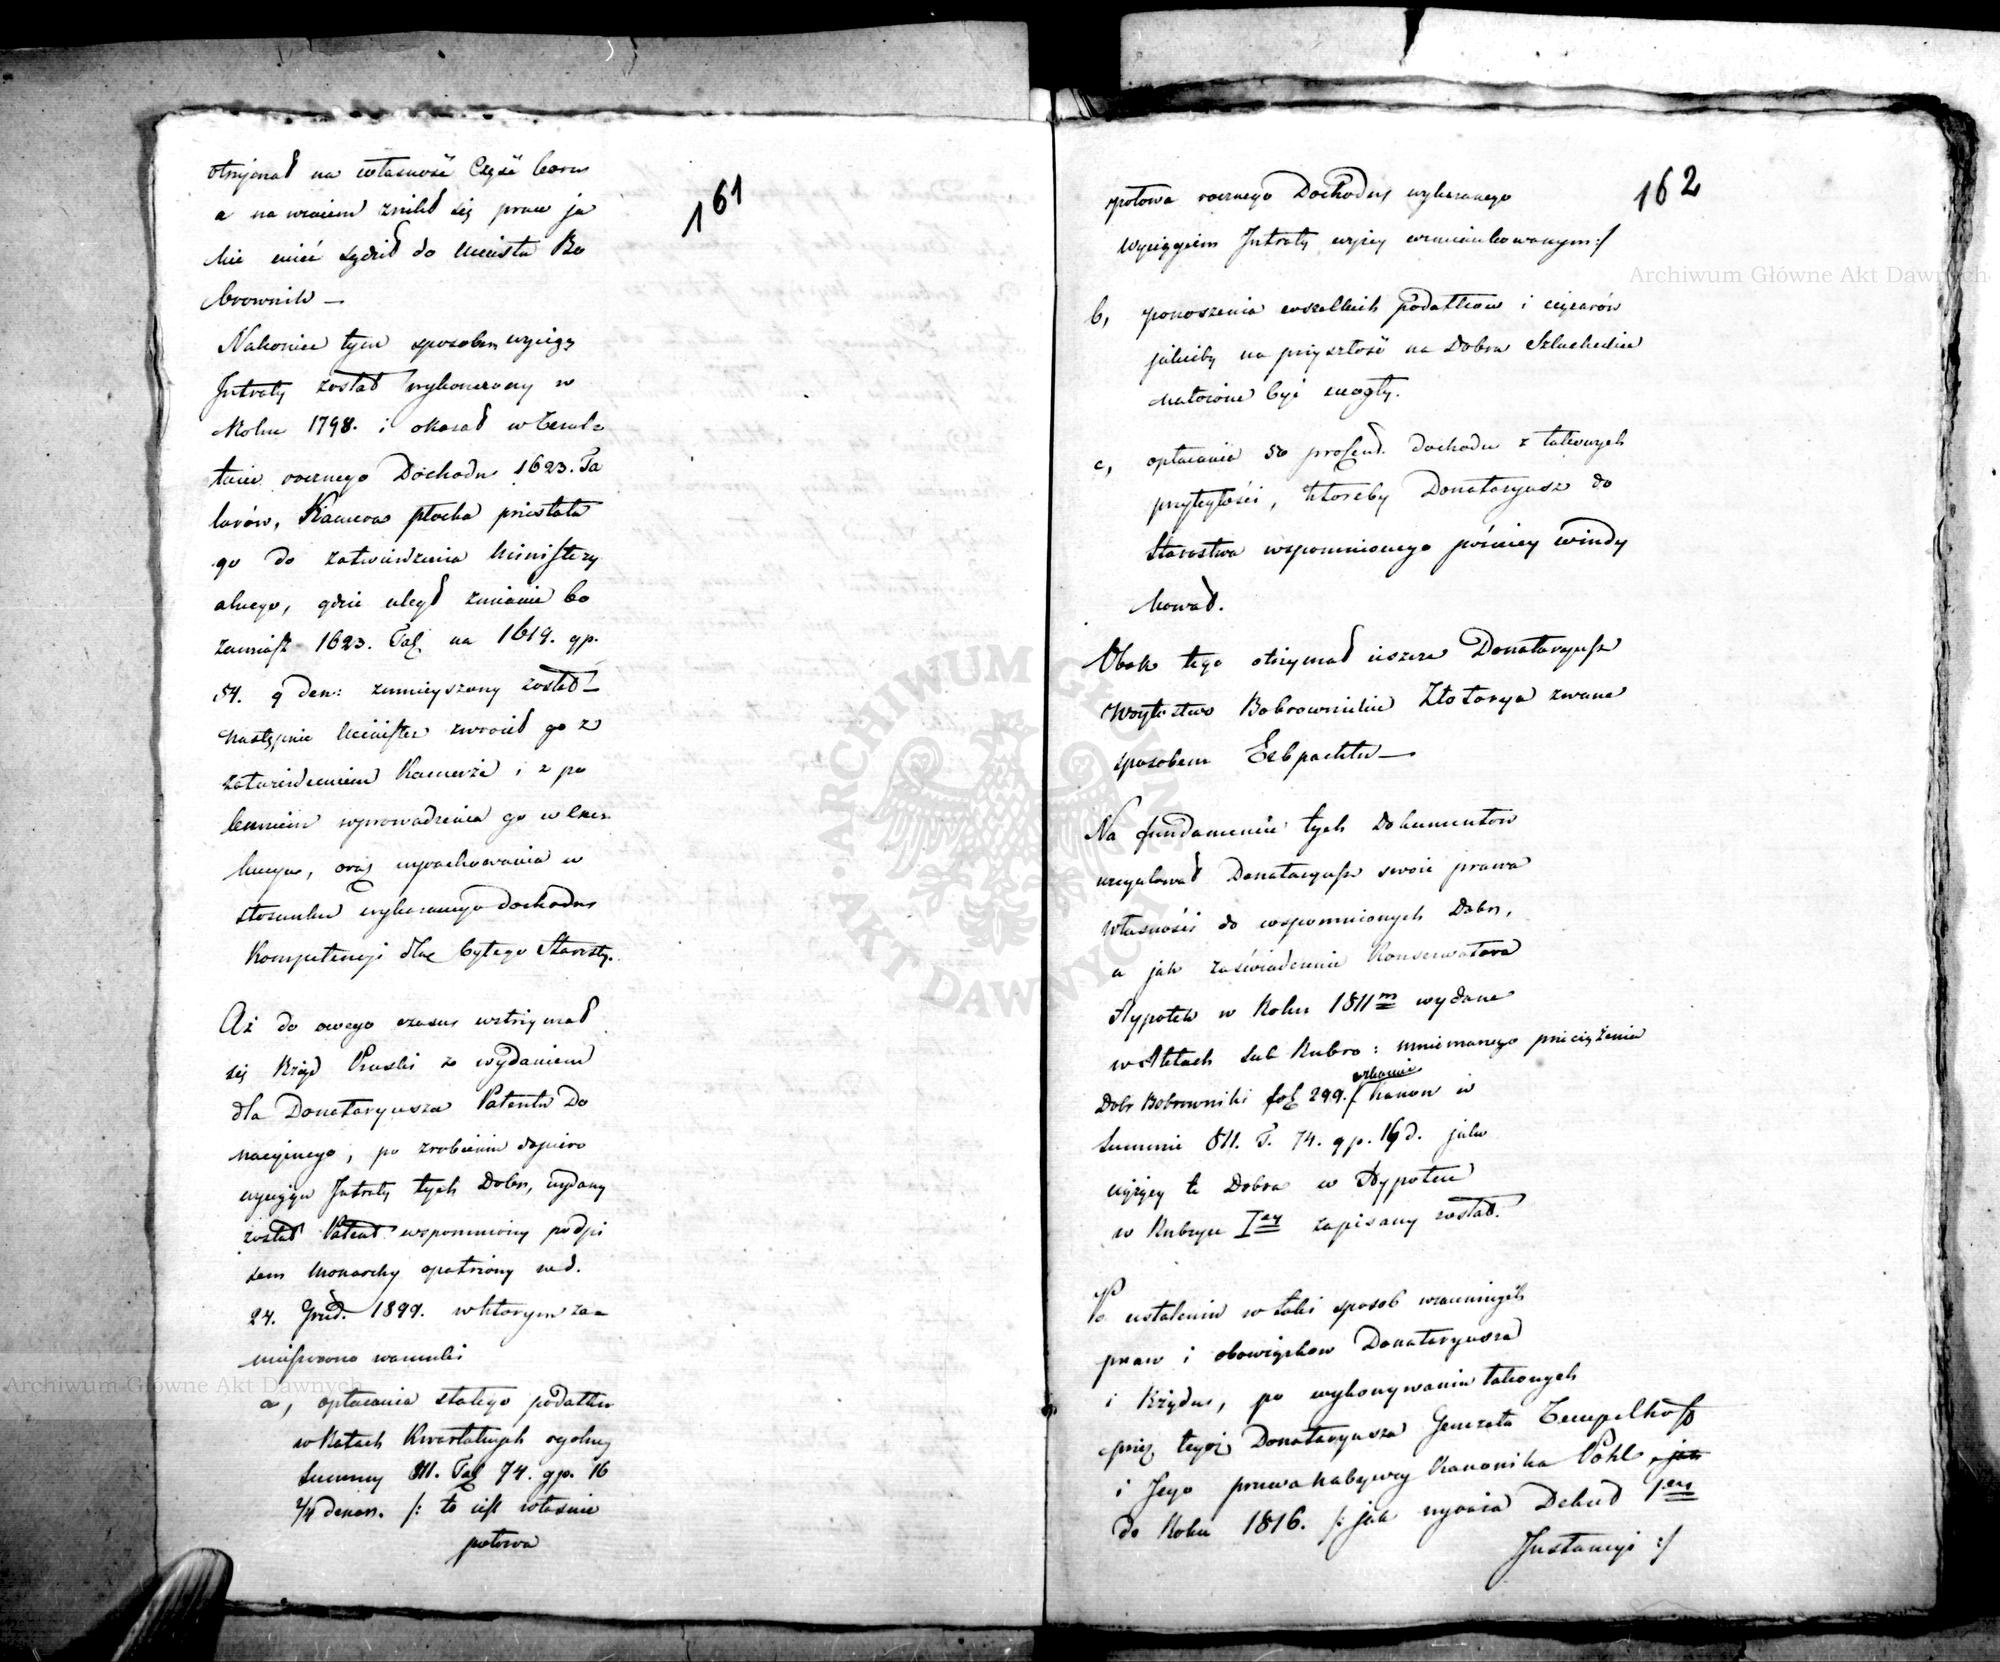 161
otrzymał na własność Część boru
a na wzaiem zrzekł się praw ja
kie mieć sądził do Miasta Bo
brownik —
Nakoniec tym sposobem wyciąg
Intraty został wykonczony w
Roku 1798. i okazał w Rezul-
tacie rocznego Dochodu 1623. Ta
larów, Kamera płocka przesłała
go do zatwierdzenia Ministery
alnego, gdzie uległ zmianie bo
zamiast 1623. Tal na 1619. gp.
54. 9 den: zmnieyszony został —
następnie Minister zwrócił go z
zatwierdzeniem Kamerze i z po
leceniem wprowadzenia go w Exe-
kucyą, oraz wyrachowania w
stosunku wykazanego dochodu
Kompetencyi dla byłego Starosty.
Aż do owego czasu wstrzymał
się Rząd Pruski z wydaniem
dla Donataryusza Patentu Do
nacyinego, po zrobieniu dopiero
wyciągu Intraty tych Dobr, wydany
został Patent wspomniony podpi
sem Monarchy opatrzony w d.
24. Grud. 1899. w którym za-
mieszczono warunki
a, opłacania stałego podatku
w Ratach Kwartalnych ogolney
Summy 811. Tal 74. gp. 16
2/4 denar. /: to iest własnie
połowa
162
połowa rocznego Dochodu wykazanego
Wyciągiem Intraty wyżey wzmiankowanym :/
b, ponoszenia wszelkich podatkow i ciężarów
jakieby na przyszłość na Dobra Szlacheckie
nałożone być mogły.
c, opłacania 50 procent. dochodu z takowych
przyległości, ktoreby Donataryusz do
Starostwa wspomnionego poźniey windy
kował.
Obok tego otrzymał ieszcze Donataryusz
Woytostwo Bobrownickie Złotorya zwane
sposobem Erbpachtu —
Na fundamencie tych Dokumentow
uregulował Donataryusz swoie prawa
własności do wspomnionych Dobr,
a jak zaświadczenie Konserwatora
Hypotek w Roku 1811m wydane
w Aktach sub Rubro: mniemanego przeciążenia
Dobr Bobrowniki fol 299. Kanon w
Summie 811. T. 74. gp. 16 d. jako
wyżey te Dobra w Hypotece
w Rubryce Iey zapisany został.
Po ustaleniu w taki sposob wzaiemnych
praw i obowiązkow Donataryusza
i Rządu, po wykonywaniu takowych
przez tegoż Donataryusza Generała Tempelhoff
i Jego prawa nabywcy Kanonika Pohl, jak
do Roku 1816. /: jak wyraża Dekret 1ey
Instancyi :/